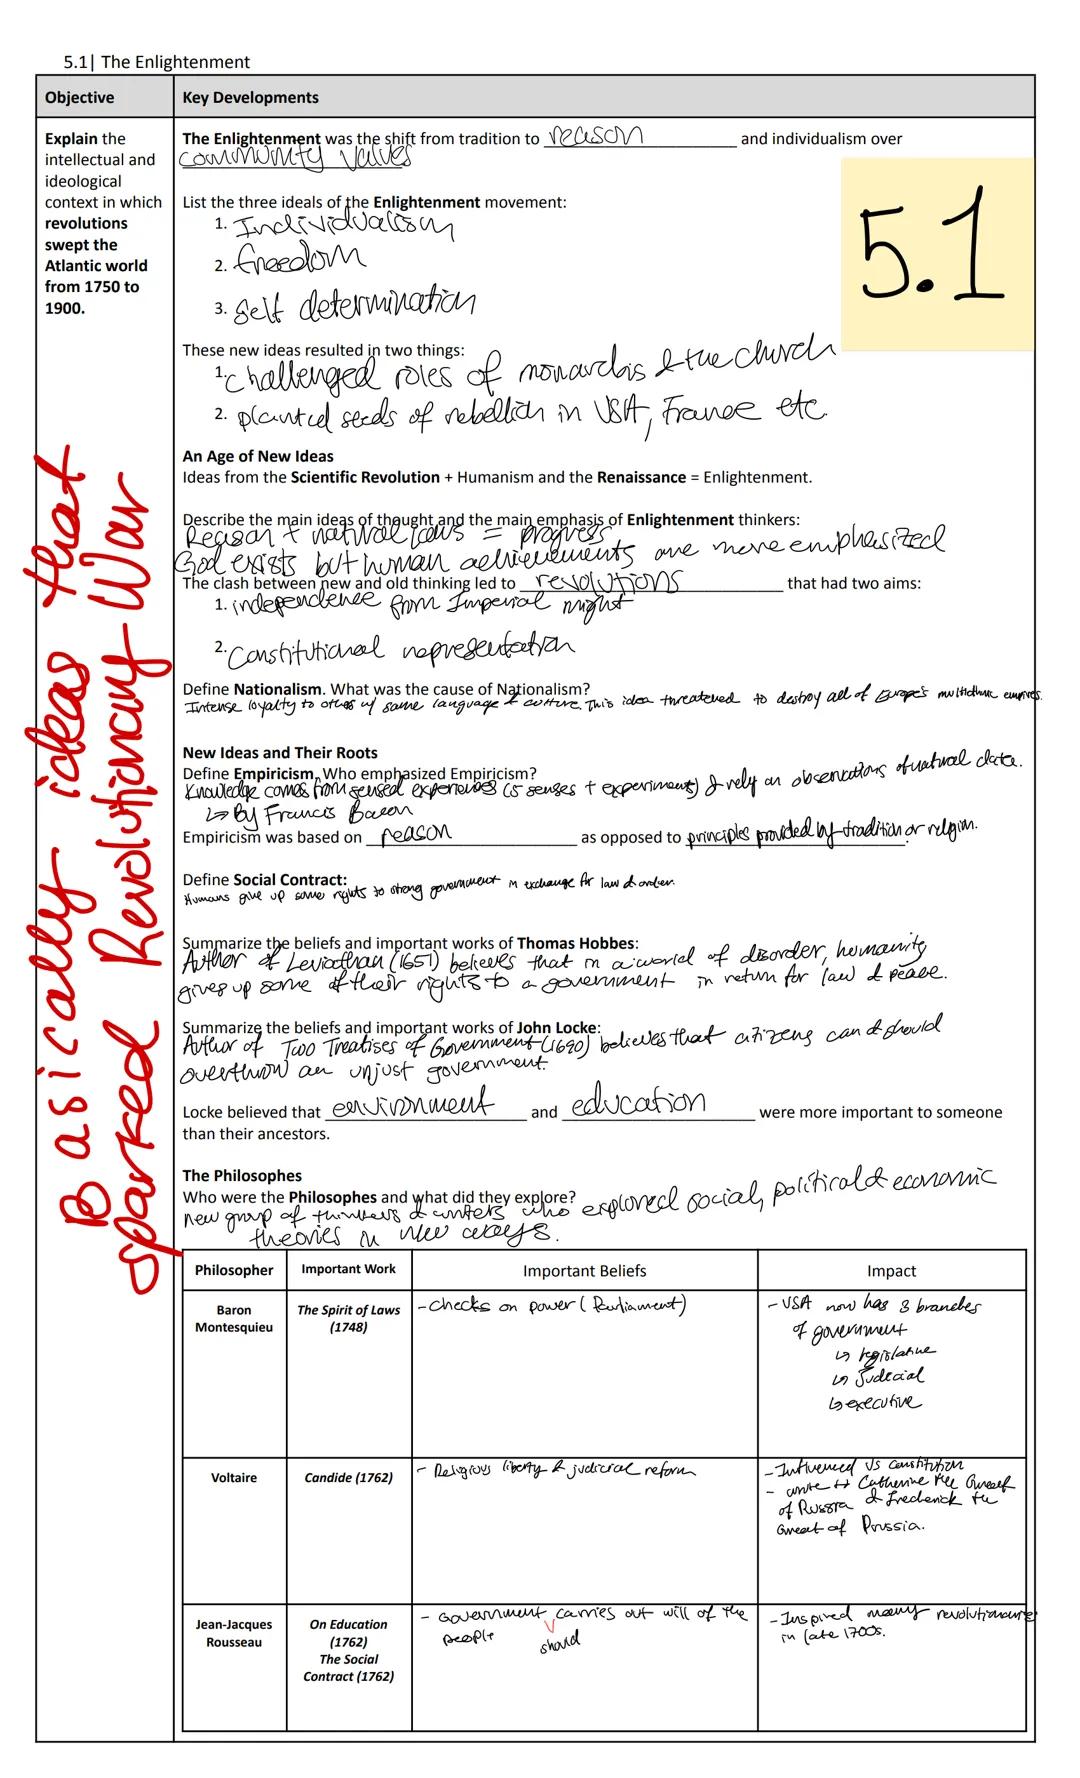 5.1| The Enlightenment
Objective
Key Developments
Explain the
intellectual and
ideological
context in which
revolutions
swept the
Atlantic world
from 1750 to
1900.
Basically ideas that
sparked Revolutionary War
The Enlightenment was the shift from tradition to reason and individualism over
community values
5.1
List the three ideals of the Enlightenment movement:
1. Individualism
2. freedom
3. Self determination
These new ideas resulted in two things:
1. challenged roles of monarchs & the church
2. planted seeds of rebellion in USA, France etc.
An Age of New Ideas
Ideas from the Scientific Revolution + Humanism and the Renaissance = Enlightenment.
Describe the main ideas of thought and the main emphasis of Enlightenment thinkers:
Reason + natural laws = progress
God exists but human achievements are more emphasized
The clash between new and old thinking led to revolutions that had two aims:
1. independence from Imperial might
2. Constitutional representation
Define Nationalism. What was the cause of Nationalism?
Intense loyalty to others w/ same language & culture. This idea threatened to destroy all of Europe's multiethnic empires.
New Ideas and Their Roots
Define Empiricism. Who emphasized Empiricism?
Knowledge comes from sensed experiences (5 senses + experiments) & rely on observations of natural data.
↳ By Francis Bacon
Empiricism was based on reason as opposed to principles provided by tradition or religion.
Define Social Contract:
Humans give up some rights to strong government in exchange for law & order.
Summarize the beliefs and important works of Thomas Hobbes:
Author of Leviathan (1651) believes that in a world of disorder, humanity
gives up some of their rights to a government in return for law & peace.
Summarize the beliefs and important works of John Locke:
Author of Two Treatises of Government (1690) believes that citizens can & should
overthrow an unjust government.
Locke believed that environment and education were more important to someone
than their ancestors.
The Philosophes
Who were the Philosophes and what did they explore?
new group of thinkers & writers who explored social, political & economic
theories in new ways.
Philosopher
Important Work
Important Beliefs
Impact
Baron
Montesquieu
The Spirit of Laws
(1748)
- checks on power (Parliament)
- USA now has 3 branches
of government
↳ legislative
↳ Judicial
↳ executive
Voltaire
Candide (1762)
- Religious liberty & judicial reform
- Influenced US constitution
- wrote ↔ Catherine the Great
of Russia & Frederick the
Great of Prussia.
Jean-Jacques
Rousseau
On Education
(1762)
The Social
Contract (1762)
- Government carries out will of the
people
should
- Inspired many revolutionaries
in late 1700s.